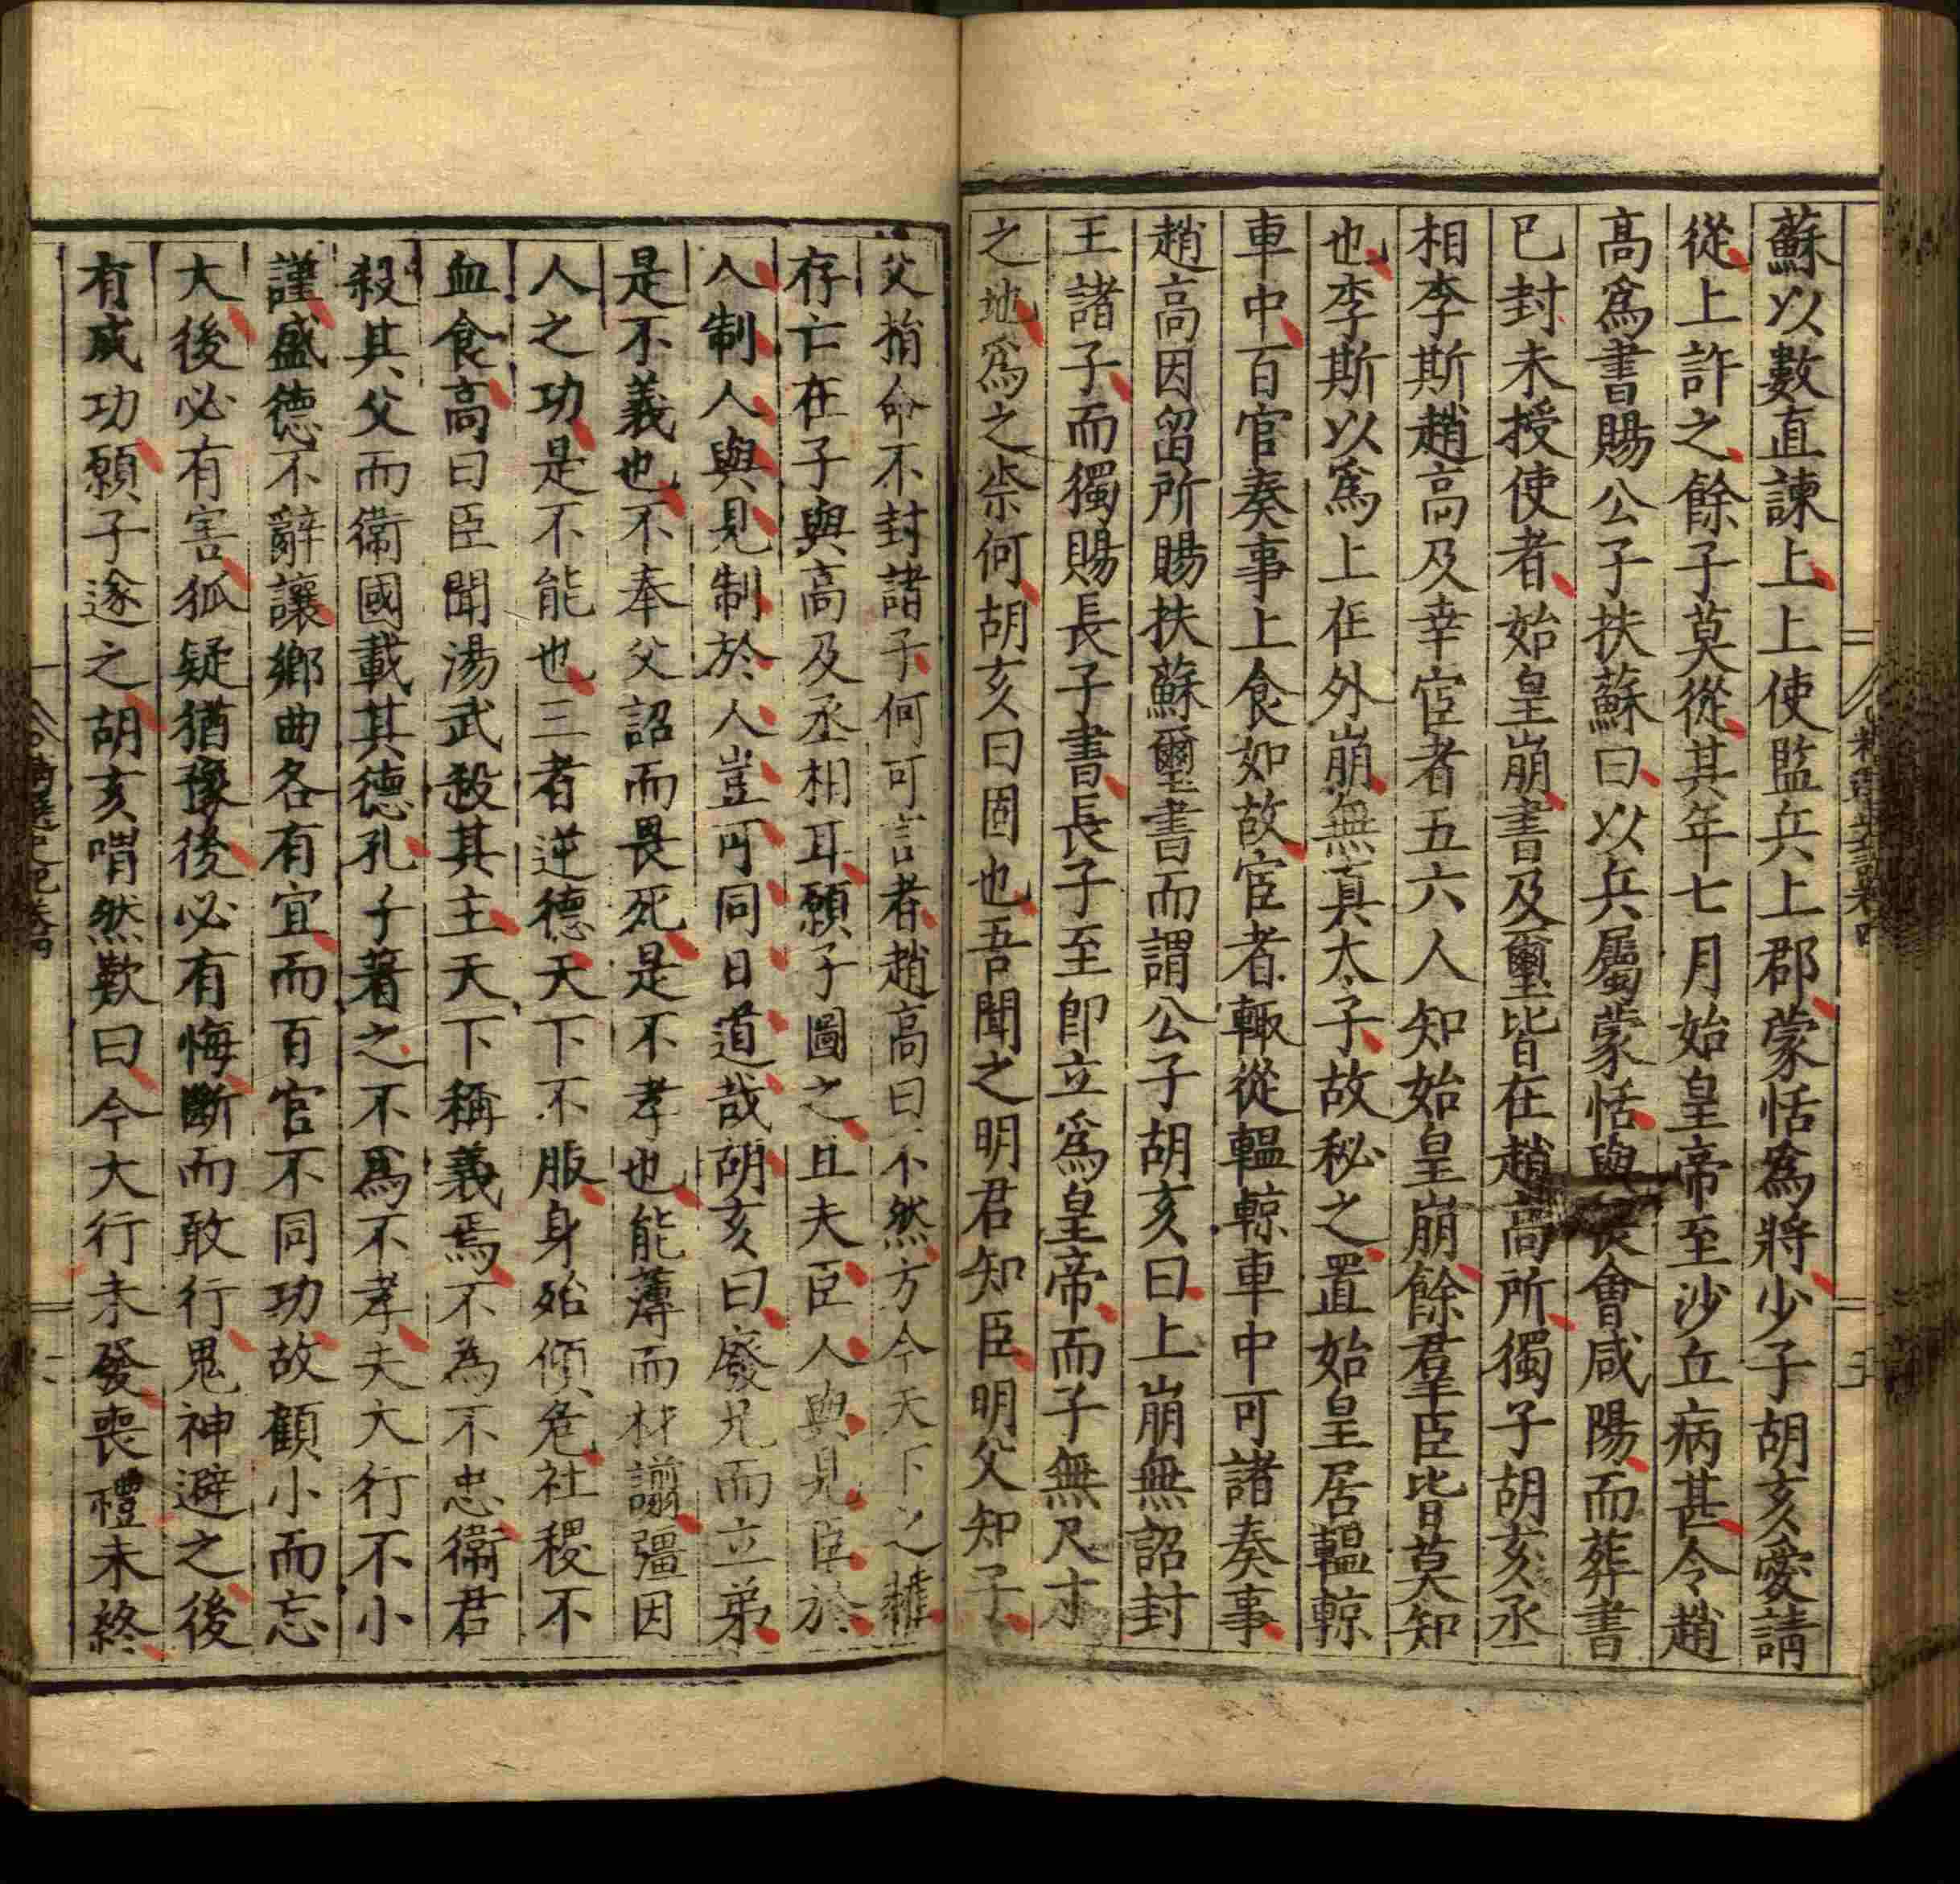 蘇以數直諫上上使監兵上郡蒙恬爲將少子胡亥愛請
從上許之餘子莫從其年七月始皇帝至沙丘病甚令趙
高爲書賜公子扶蘇曰以兵屬蒙恬與喪會咸陽而葬書
已封未授使者始皇崩書及璽皆在趙高所獨子胡亥丞
相李斯趙高及幸宦者五六人知始皇崩餘羣臣皆莫知
也李斯以爲上在外崩無真太子故秘之置始皇居轀輬
車中百官奏事上食如故宦者輙從轀輬車中可諸奏事
趙高因留所賜扶蘇璽書而謂公子胡亥曰上崩無詔封
王諸子而獨賜長子書長子至卽立爲皇帝而子無尺寸
之地爲之柰何胡亥曰固也吾聞之明君知臣明父知子
父捐命不封諸子何可言者趙高曰不然方今天下之權
存亡在子與高及丞相耳願子圖之且夫臣人與見臣於
人制人與見制於人豈可同日道哉胡亥曰廢兄而立弟
是不義也不奉父詔而畏死是不孝也能薄而材謭彊因
人之功是不能也三者逆德天下不服身殆傾危社稷不
血食高曰臣聞湯武殺其主天下稱義焉不為不忠衛君
殺其父而衛國載其德孔子著之不爲不孝夫大行不小
謹盛德不辭讓鄉曲各有宜而百官不同功故顧小而忘
大後必有害狐疑猶豫後必有悔斷而敢行鬼神避之後
有成功願子遂之胡亥喟然歎曰今大行未發喪禮未終